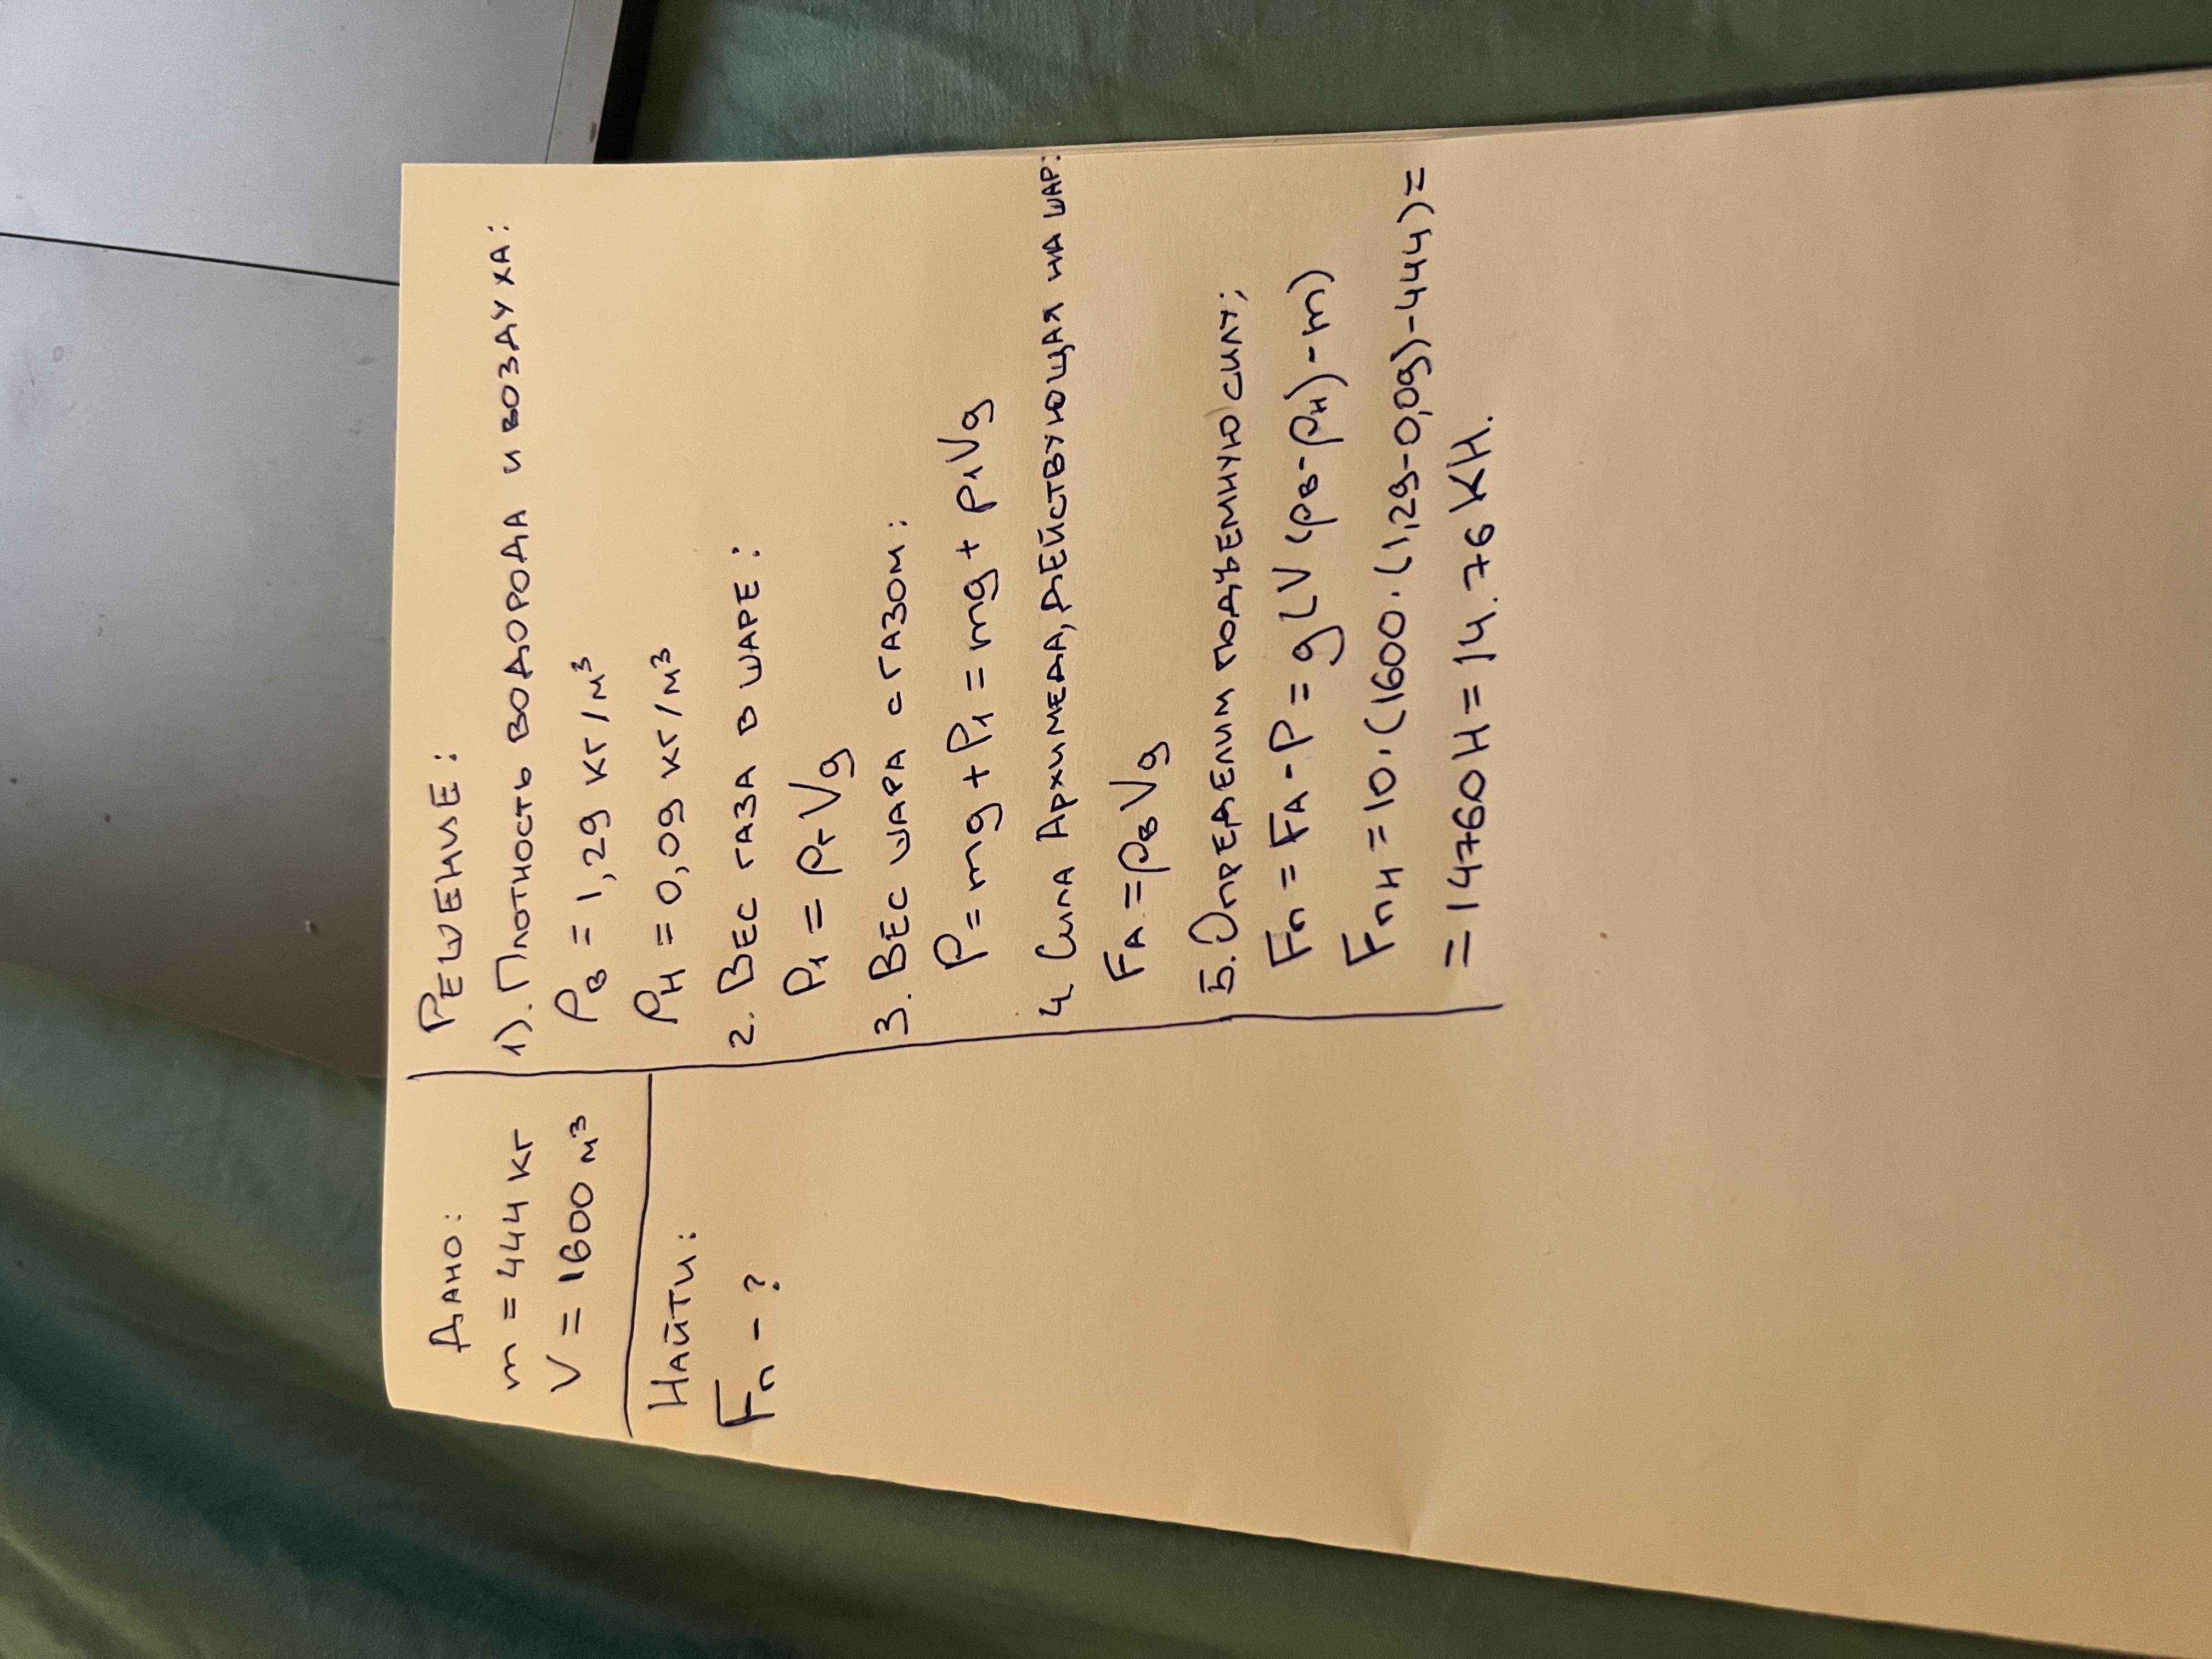 Дано:
m = 444 кг
V = 1600 м³
Найти:
Fп - ?
Решение:
1). Плотность водорода и воздуха:
ρв = 1,29 кг/м³
ρн = 0,09 кг/м³
2. Вес газа в шаре:
P₁ = ρгVg
3. Вес шара с газом:
P = mg + P₁ = mg + ρ₁Vg
4 Сила Архимеда, действующая на шар:
FA = ρвVg
5. Определим подъемную силу;
Fп = FA - P = g(V(ρв-ρн)-m)
Fпн = 10·(1600·(1,29-0,09)-444)=
= 14760Н = 14.76 КН.